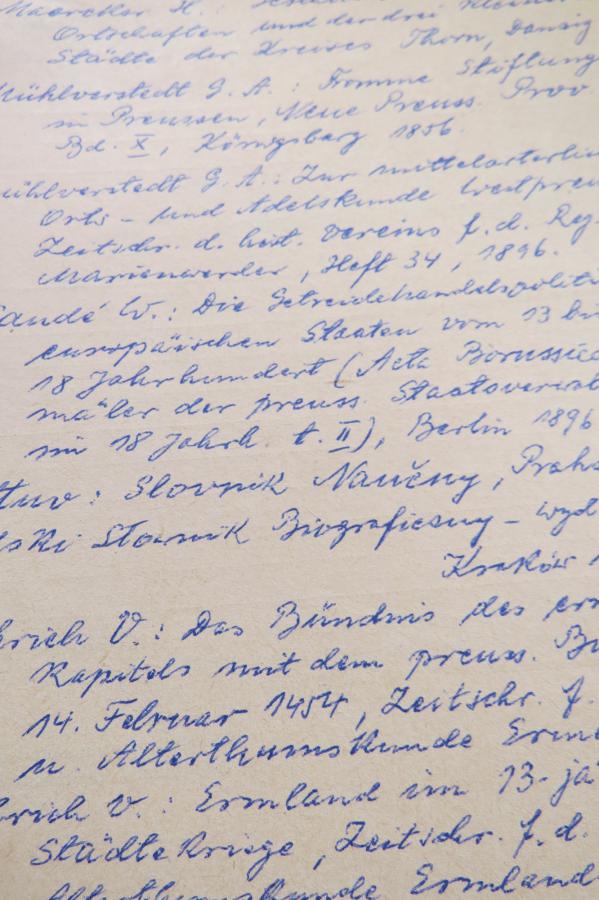 Maercker H.:
Ortschaften und der drei kleinen
Städte der Kreises Thorn, Danzig
Mühlverstedt G. A.: Fromme Stiftung
in Preussen, Neue Preuss. Prov
Bd. X, Königsberg 1856.
ühlverstedt G. A.: Zur mittelarterli
Orts- und Adelskunde Westpreu
Zeitschr. d. hist. Vereins f. d. Reg.
Marienwerder, Heft 34, 1896.
audé W.: Die Getreidehandelspoliti
europäischen Staaten vom 13 bi
18 Jahrhundert (Acta Borussica
mäler der preuss. Staatsverwal
im 18 Jahrh. t. II), Berlin 1896
ttuv: Slovnik Naučny, Praha
lski Słownik Biograficzny - wyd
Kraków 1
hrich V.: Das Bündnis des erm
Kapitels mit dem preuss. Bu
14. Februar 1454, Zeitschr. f.
u. Alterthumskunde Erml
hrich V.: Ermland im 13-jä
Städtekriege, Zeitschr. f. d.
Alterthumskunde Ermland